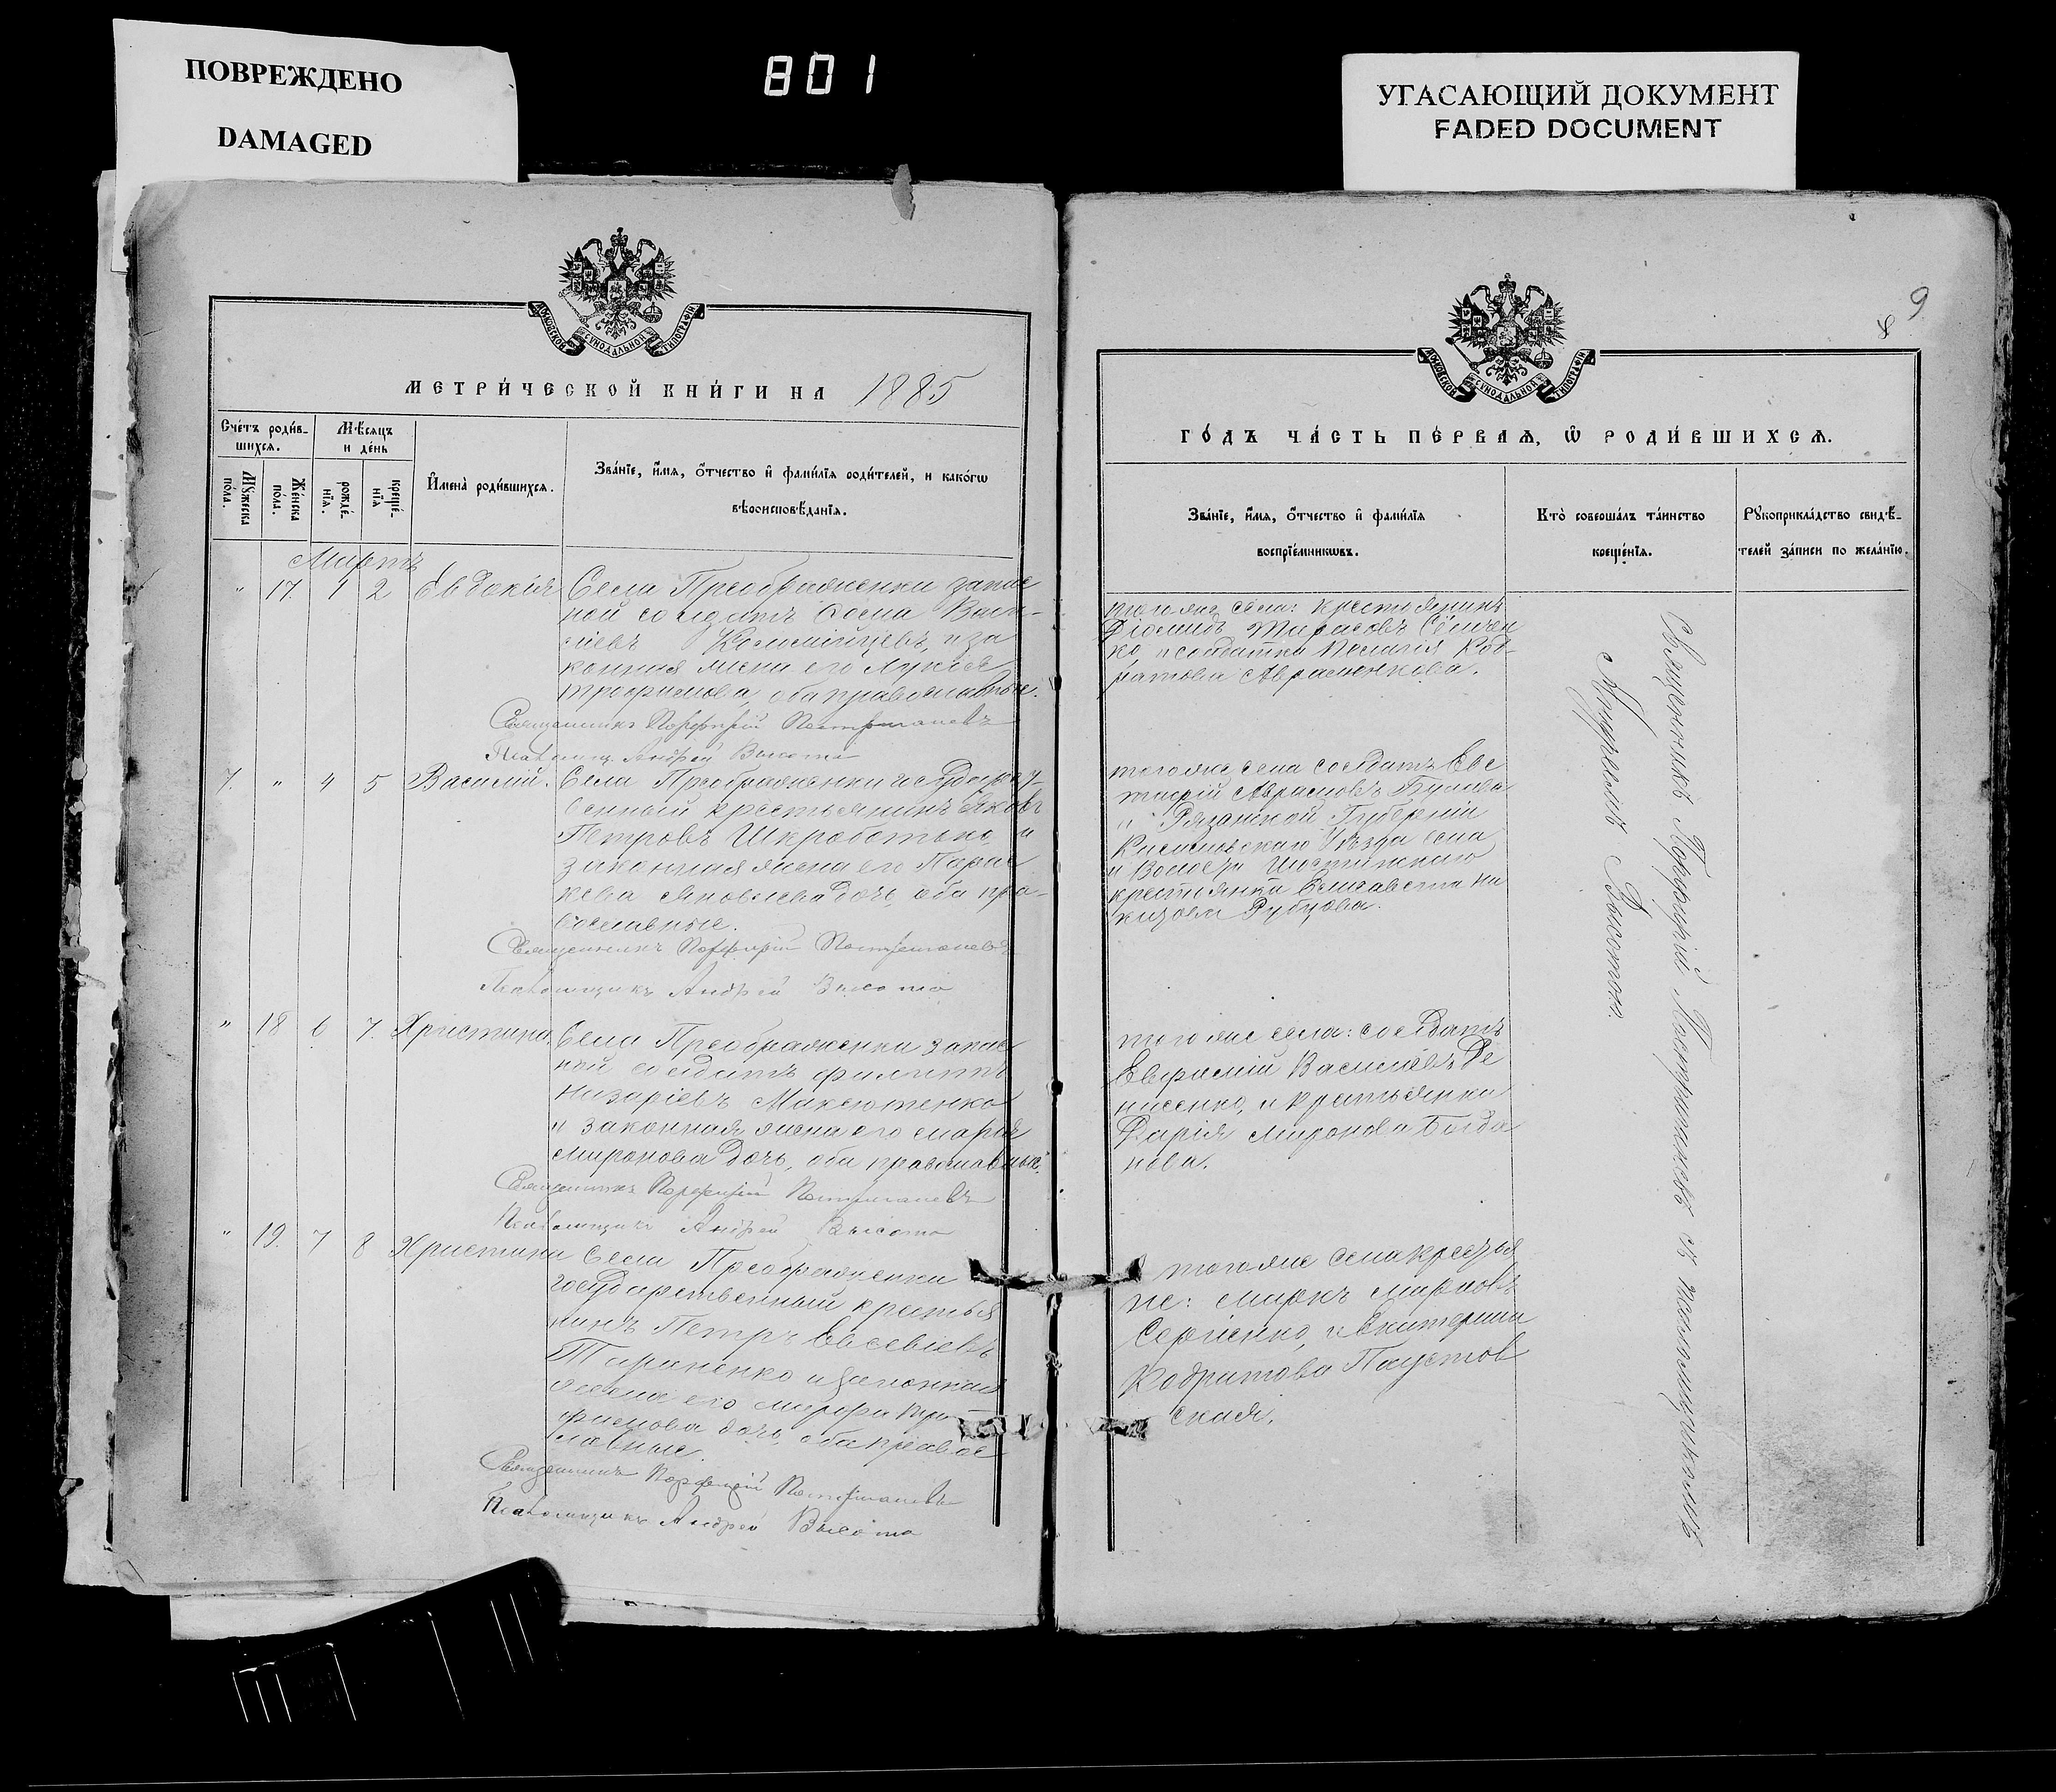 ПОВРЕЖДЕНО
DAMAGED
801
УГАСАЮЩИЙ ДОКУМЕНТ
FADED DOCUMENT
МОСКОВСКОЙ СУНОДАЛЬНОЙ ТИПОГРАФІИ
МЕТРИ́ЧЕСКОЙ КНИ́ГИ НА 1885
Сче́тъ роди́в-
шихсѧ.
Мѣ́сѧцъ
и де́нь
Мꙋ́жеска
по́ла.
Же́нска
по́ла.
рожде́-
нїѧ.
креще́-
нїѧ
И҆мена̀ роди́вшихсѧ.
Зва́нїе, и҆́мѧ, ѻ҆́тчество и҆ фами́лїѧ роди́телей, и како́гѡ
вѣроисповѣ́данїѧ.
Мартъ
" 17 1 2 Евдокія
Села Преображенки запас
ной солдатъ Сосна Васи-
ліевъ Коломійцевъ, и за
конная жена его Лукія
Трофимова, оба православные.
Священникъ Порфирій Постриганевъ
Псаломщ. Андрей Высота
7. " 4 5 Василій.
Села Преображенки государст
венный крестьянинъ Яковъ
Петровъ Шкроботько и
законная жена его Парас
кева Яковлева дочь, оба пра-
вославные.
Священникъ Порфирій Постриганевъ
Псаломщикъ Андрей Высота
" 18 6 7. Христина.
Села Преображенки запас
ной солдатъ Филиппъ
Назаріевъ Максютенко
и законная жена его Марія
Миронова дочь, оба православные.
Священникъ Порфирій Постриганевъ
Псаломщикъ Андрей Высота
" 19. 7 8 Христина
Села Преображенки
государственный крестья
нинъ Петръ Евсевіевъ
Тараненко и законная
жена его Марфа Тро
фимова дочь, оба правос
лавные.
Священникъ Порфирій Постриганевъ
Псаломщикъ Андрей Высота
9
8
МОСКОВСКОЙ СУНОДАЛЬНОЙ ТИПОГРАФІИ
ГО́ДЪ ЧА́СТЬ ПЕ́РВАѦ, Ѡ҆ РОДИ́ВШИХСѦ.
Зва́нїе, и҆́мѧ, ѻ҆́тчество и҆ фами́лїѧ
воспрїе́мникѡвъ.
Кто̀ соверша́лъ та́инство
креще́нїѧ.
Рꙋкоприкла́дство свидѣ́-
телей за́писи по жела́нїю.
того же села: крестьянинъ
Діомидъ Тарасовъ Семчен
ко, и солдатка Пелагія Код-
ратова Авраменкова.
того же села солдатъ Евс
тафій Аврамовъ Булава
и Рязанской Губерніи
Касимовскаго Уѣзда села
и Волости
крестьянка Елисавета
Рубцова.
того же села: солдатъ
Евфимій Василіевъ Де
нисенко, и крестьянка
Дарія Миронова Богда
нова.
того же села крестья
не: Маркъ Марковъ
Сергіенко, и Екатерина
Кодратова Паустов
ская.
Священникъ Порфирій Постриганевъ съ псаломщикомъ
Андреемъ Высотою.